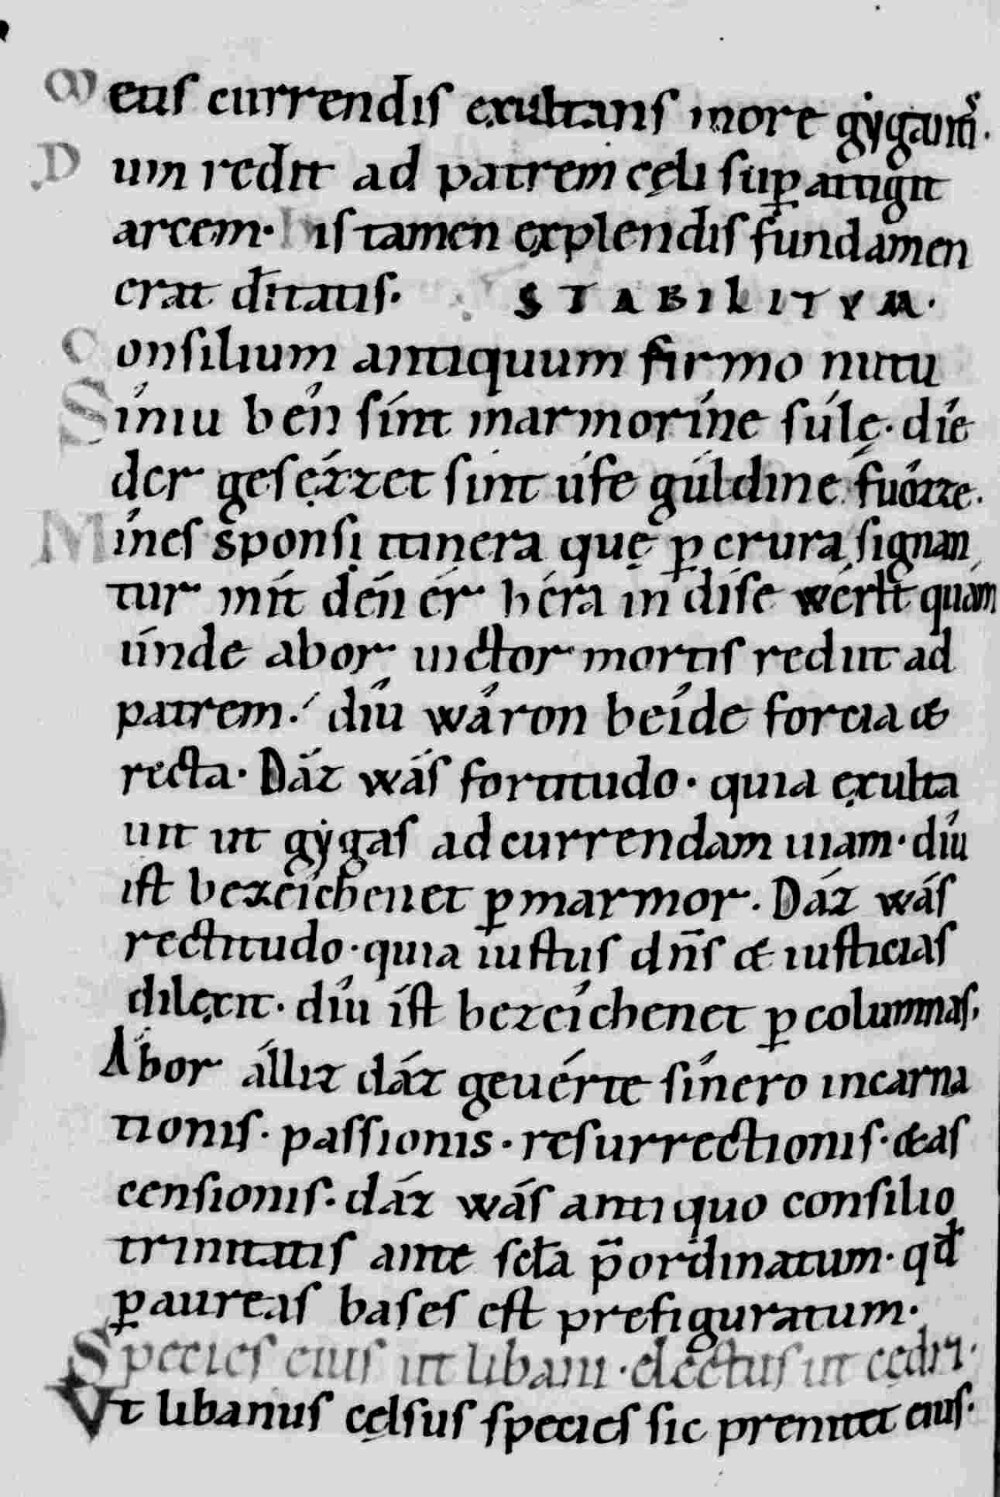 Meus currendis exultans more gẏgant᷒.
Dum redit ad patrem cęli suꝑ attigit
arcem· His tamen explendis fundamen
erat dn̄tatis· STABILITVM·
Consilium antiquum firmo nutu
Síniu béin sínt marmorîne súlę· díe
der gesézzet sint ûfe gúldine fuózze·
Mínes sponsi itinera quę ꝑ crura signan
tur mít dén ér héra in díse wérlt quám
únde abor uictor mortis rediit ad
patrem· díu wâron beíde forcia &
recta· Dáz wás fortitudo· quia exulta
uit ut gẏgas ad currendam uiam· díu
ist bezeíchenet ꝑ marmor· Dáz wás
rectitudo· quia iustus dn̄s & iusticias
dilexit· díu íst bezeíchenet ꝑ columnas·
Ábor állíz dáz geuérte sínero incarna
tionis· passionis· resurrectionis· & as
censionis· dáz wás antiquo consilio
trinitatis ante scl̄a p̄ordinatum· qđ
ꝑ aureas bases est prefiguratum·
Species eius ut libani· electus ut cedri·
Vt libanus cęlsus species sic preminet eius·